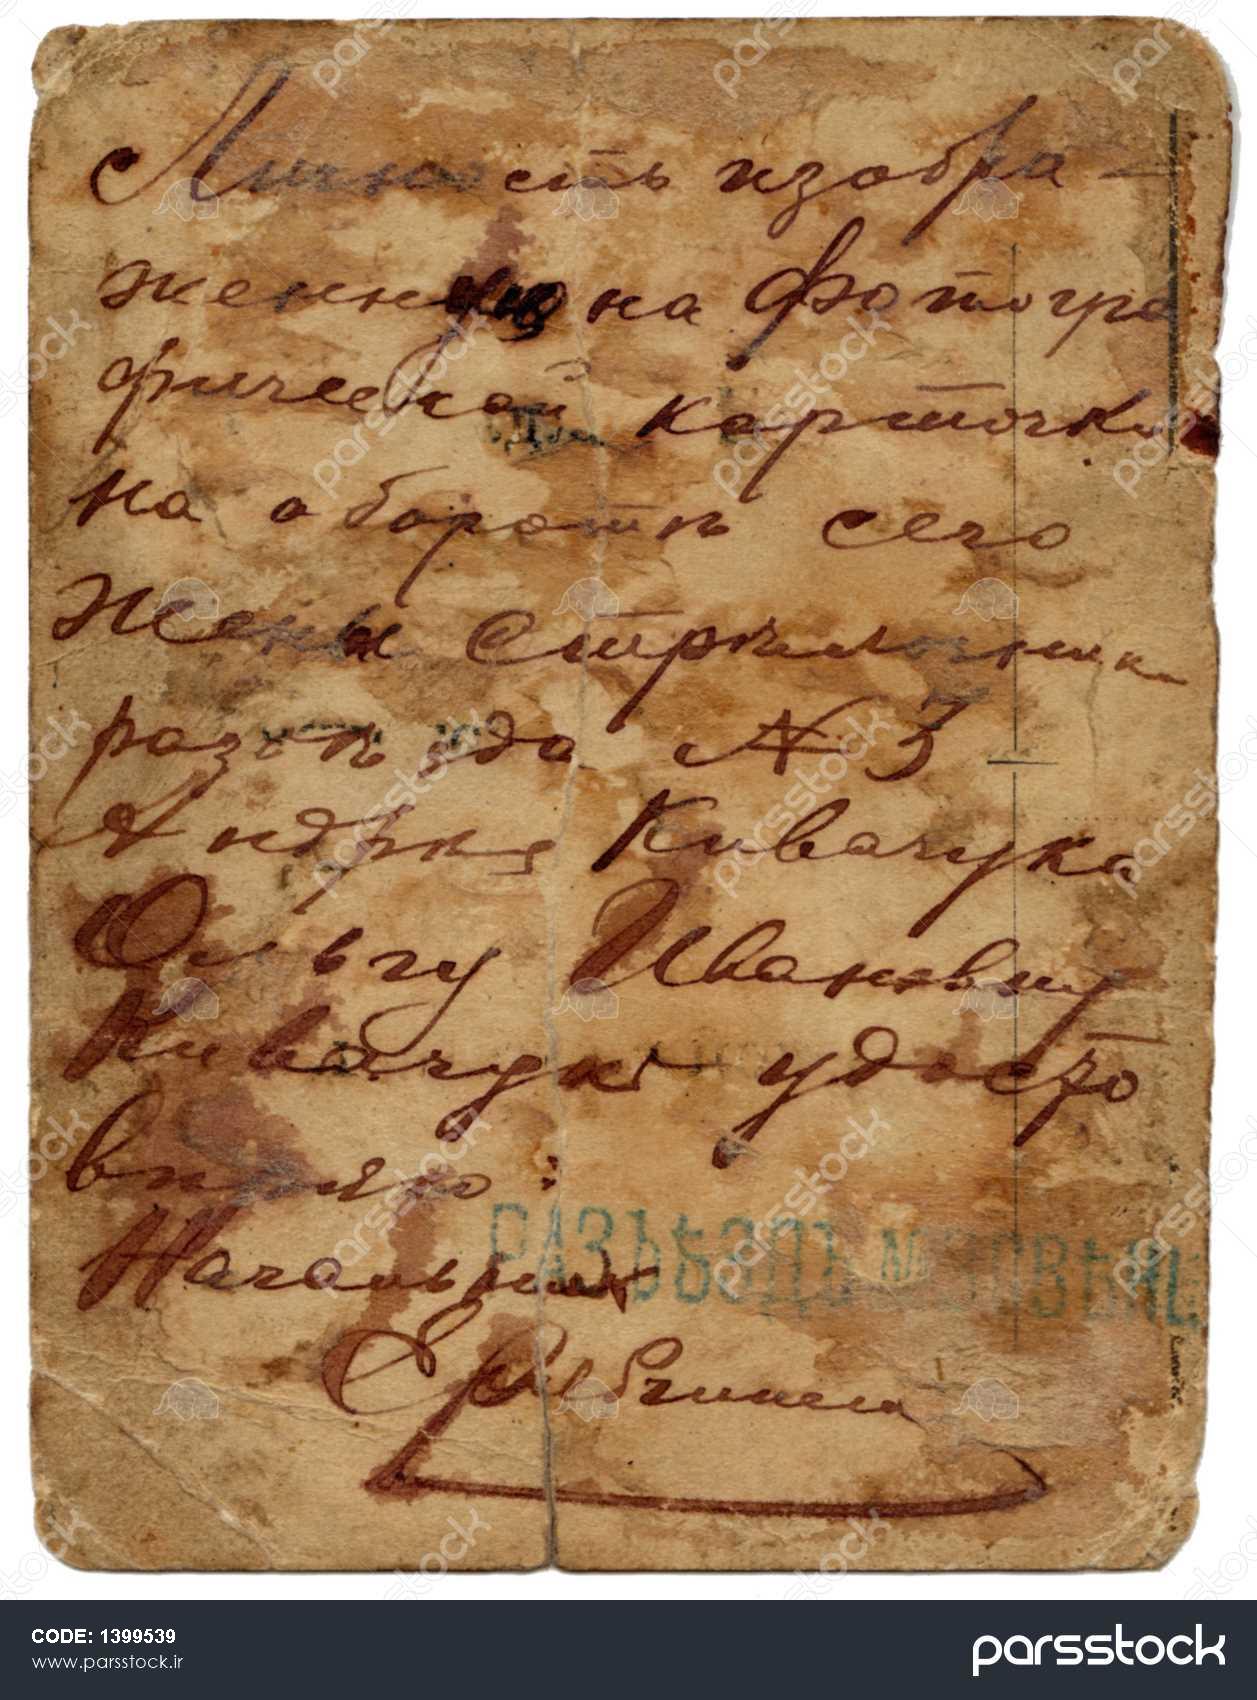 Личность изобра-
женную на фотогра
фической карточкѣ
на оборотѣ сего
жены стрѣлочника
разъѣзда № 3
Андрея Кивачука
Ольгу Ивановну
Кивачукъ удосто
вѣряю:
Начальникъ
РАЗЪѢЗДЪ №
CODE: 1399539
www.parsstock.ir
parsstock